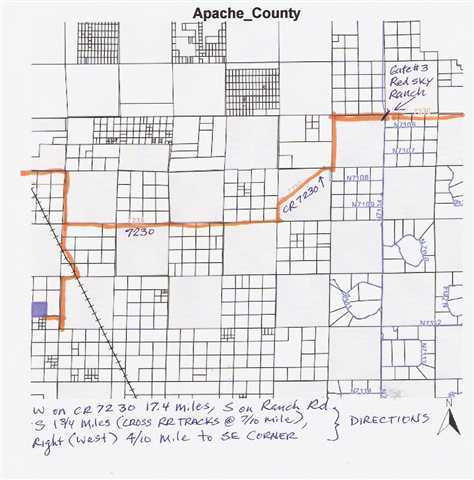 Apache_County
Gate #3
Red Sky
Ranch
7230
N7106
N7107
N7108
CR 7230
N7109
7230
W on CR 7230 17.4 miles, S on Ranch Rd
S 1 3/4 miles (CROSS RR TRACKS @ 7/10 mile),
Right (West) 4/10 Mile to SE CORNER
DIRECTIONS
N